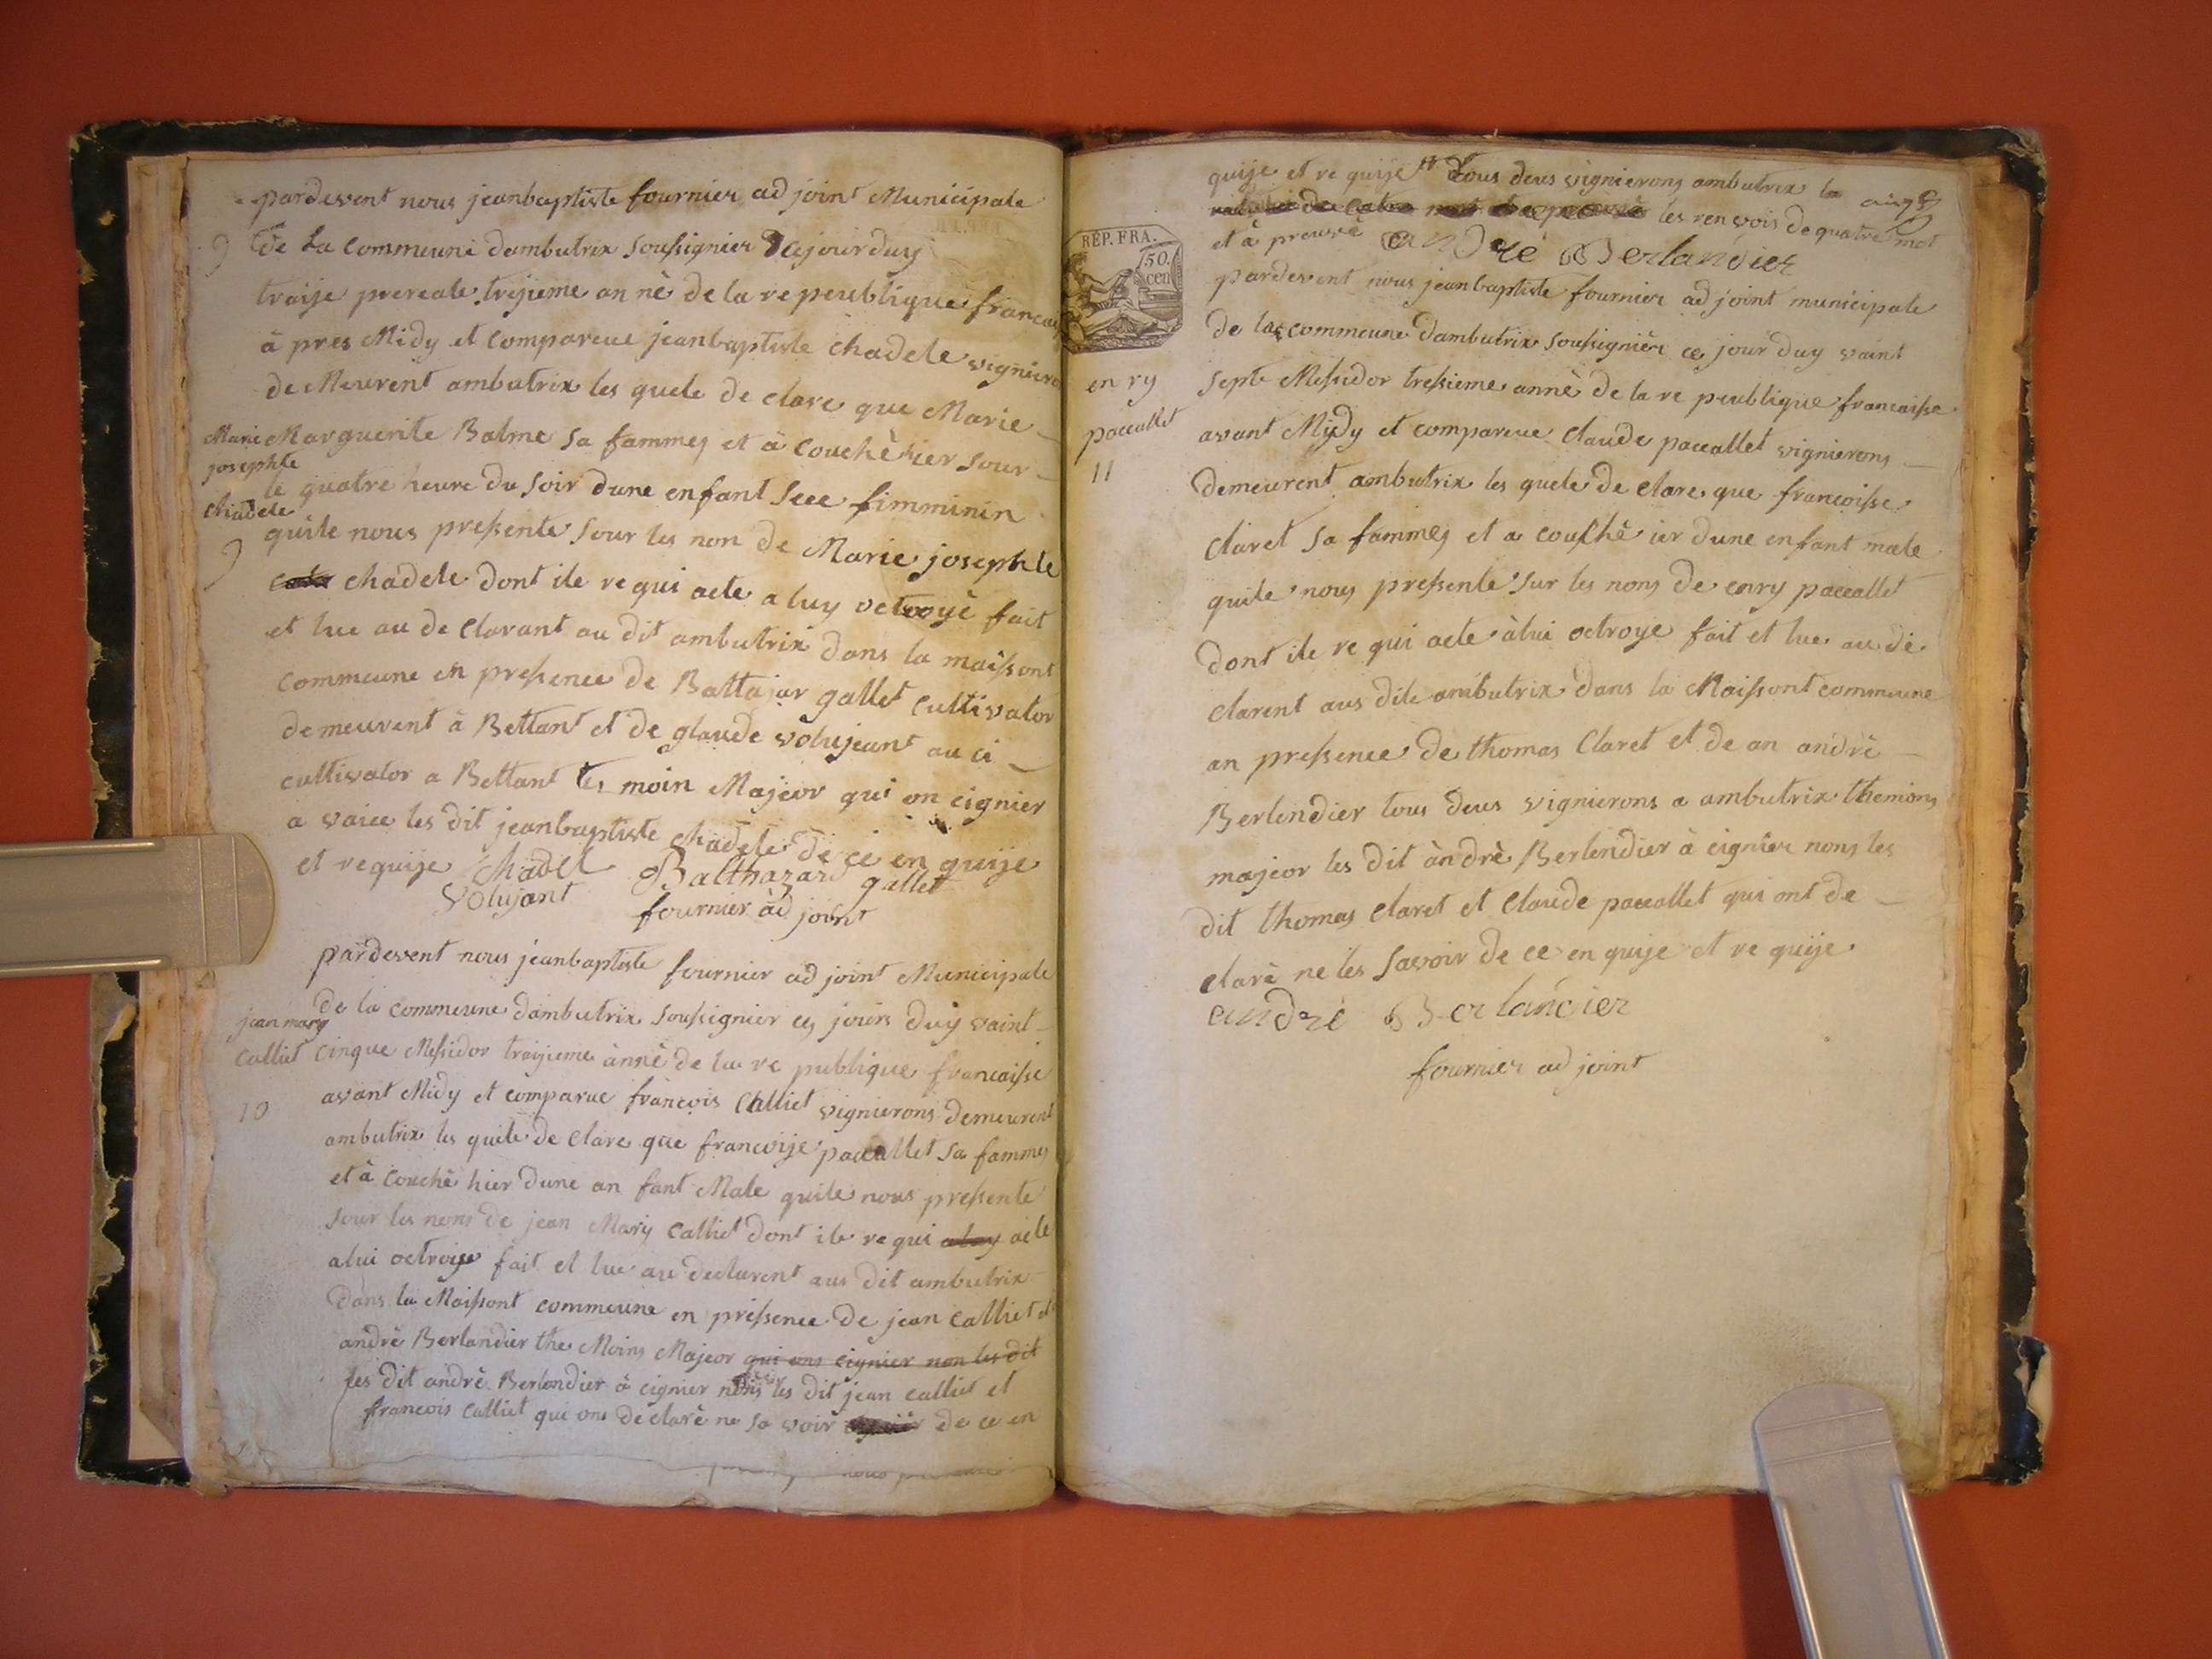 pardevent nous jeanbaptiste fournier ad joint Municipale
de La Commeune dambutrix soussignier Dejourduy
9
traije prereale trejieme an nè de la re peublique francais
à pres Midy et Compareue jeanbaptiste chadele vigniero
de Meurent ambutrix les quele de clare que Marie
Marie
josephte
chadele
9
Marguerite Balme sa fammes et à Couchè hier sour
le quatre heure du soir dune enfant seee fimminin
quile nous pressente sour les non de Marie josephte
chadele dont ile re qui acte a luy octroyè fait
et lue au de Clarant au dit ambutrix dans la maissont
Commeune en pressence de Baltajar gallet Cultivator
demeurent à Bettant et de glaude volujeant au ci
cultivator a Bettant tes moin Majeor qui on cignier
a vaice les dit jeanbaptiste chadele de ce en quije
et requije Chadel Balthazard gallet
Volujant fournier àd joint
pardevent nous jeanbaptiste fournier ad joint Municipale
jean mary
Calliet
10
de la Commeune dambutrix soussignier ces jours duy vaint
Cinque Messidor traijieme ànnè de la re publique francaisse
avant Midy et comparue francois Calliet vignierons demeurent
ambutrix les quile de Clare que francoije paccallet sa fammes
et à Couchè hier dune an fant Male quile nous pressente
sour les nons de jean Mary Calliet dont ile re qui aluy acte
alui octroije fait et lue au declarent aus dit ambutrix
Dans la Maissont commeune en pressence de jean Calliet et
andrè Berlandier the Moins Majeor qui ons cignier non les dit
les dit andrè Berlendier à cignier nons les dit jean calliet et
francois Calliet qui ons déclarè ne sa voir de ce en
quije et re quije # tous deus vignierons ambutrix la
les renvois de quatre mot
et à preuvé andré Berlandier
REP. FRA.
50.
cen
en ry
paccallet
11
pardevent nous jeanbaptiste fournier ad joint municipale
de la commeune dambutrix soussignièr ce jour duy vaint
septe Messidor tressieme annè de la re peublique francaisse
avant Mydy et compareue Claude paccallet vignierons
demeurent ambutrix les quele de clare que francoisse
Claret sa fammes et a couchè ier dune enfant male
quile nous pressente sur les nons de enry paccallet
dont ile re qui acte àlui octroye fait et lue au dè
clarent aus dite ambutrix dans la Maissont commeune
an pressence de thomas Claret et de an andrè
Berlendier tous deus vignierons a ambutrix themions
majeor les dit àndrè Berlendier à cignier nons les
dit thomas Claret et Claude paccallet qui ont de
clarè ne les savoir de ce en quije et re quije
andré Berlandier
fournier ad joint